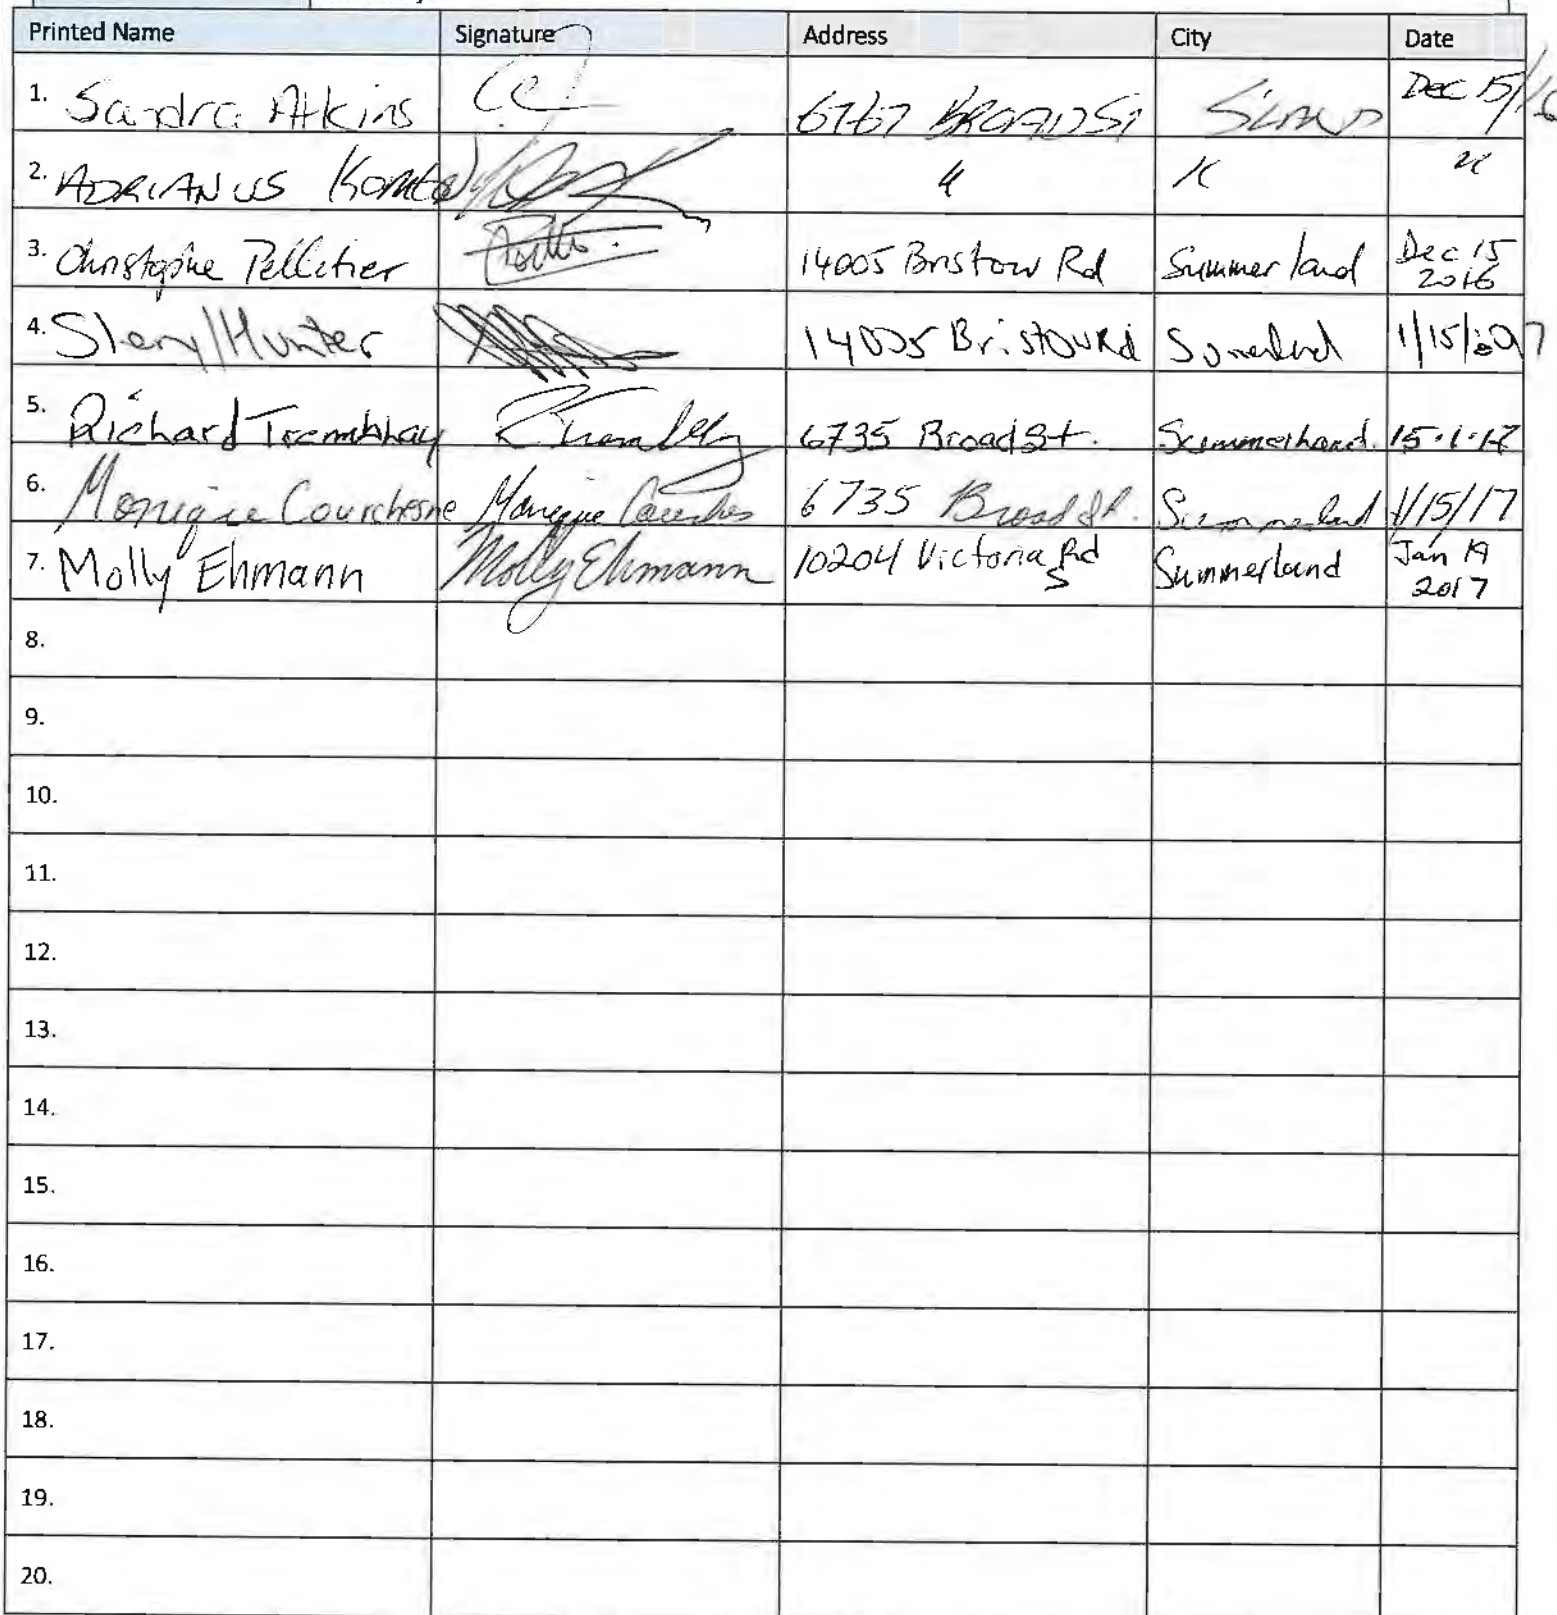 Printed Name Signature Address City Date
1. Sandra Atkins 6767 BROAD ST S'LAND Dec 15/16
2. ADRIANUS " " "
3. Christophe Pelletier 14005 Bristow Rd Summerland Dec 15 2016
4. Sheryl Hunter 14005 Bristow Rd 1/15/
5. Richard Tremblay 6735 Broad St. Summerland. 15.1.17
6. Monique Courchesne Monique 6735 Broad St. Summerland 1/15/17
7. Molly Ehmann Molly Ehmann 10204 Victoria Rd S Summerland Jan 19 2017
8.
9.
10.
11.
12.
13.
14.
15.
16.
17.
18.
19.
20.